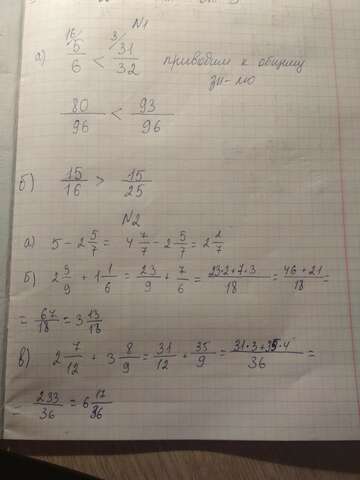 N1
а) ¹⁶⁄ 5/6 < ³⁄ 31/32 приводим к общему
зн-лю
80/96 < 93/96
б) 15/16 > 15/25
N2
а) 5 - 2 5/7 = 4 7/7 - 2 5/7 = 2 2/7
б) 2 5/9 + 1 1/6 = 23/9 + 7/6 = 23·2+7·3/18 = 46+21/18 =
= 67/18 = 3 13/18
в) 2 7/12 + 3 8/9 = 31/12 + 35/9 = 31·3+35·4/36 =
233/36 = 6 17/36